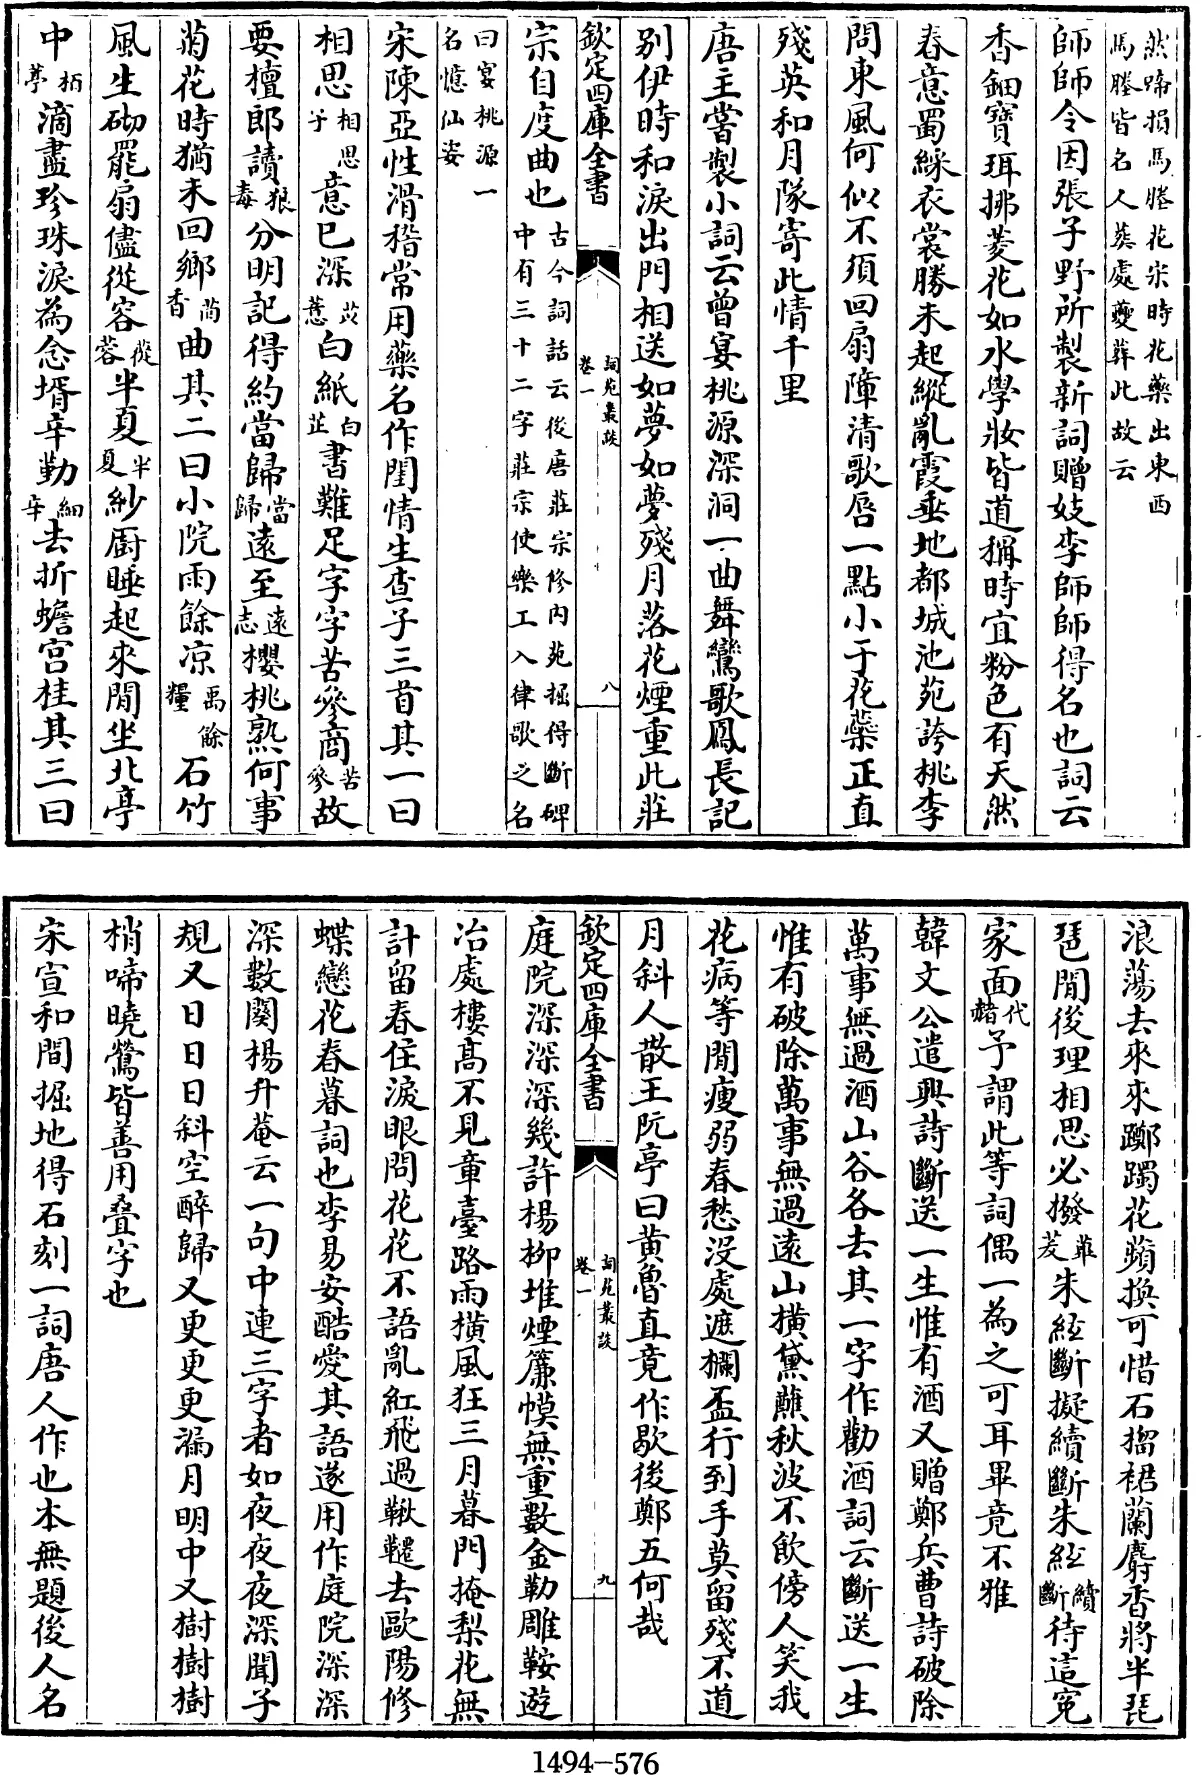 然啼損馬塍花宋時花藥出東西
馬塍皆名人葬處夔葬此故云
師師令因張子野所製新詞贈妓李師師得名也詞云
香鈿寶珥拂菱花如水學妝皆道稱時宜粉色有天然
春意蜀綵衣裳勝未起縱亂霞垂地都城池苑誇桃李
問東風何似不須回扇障清歌唇一點小于花蘂正直
殘英和月隊寄此情千里
唐主嘗製小詞云曾宴桃源深洞一曲舞鸞歌鳳長記
别伊時和淚出門相送如夢如夢殘月落花煙重此莊
欽定四庫全書
詞苑叢談
卷一
八
宗自度曲也
古今詞話云後唐莊宗修内苑掘得斷碑
中有三十二字莊宗使樂工入律歌之名
曰宴桃源一
名憶仙姿
宋陳亞性滑稽常用藥名作閨情生查子三首其一曰
相思相思子意已深薏苡白紙白芷書難足字字苦參商苦參故
要檀郎讀狼毒分明記得約當歸當歸遠至遠志櫻桃熟何事
菊花時猶未回鄉茴香曲其二曰小院雨餘凉禹餘糧石竹
風生砌罷扇儘從容蓯蓉半夏半夏紗廚睡起來閒坐北亭
中柄葶滴盡珍珠淚為念壻辛勤細辛去折蟾宫桂其三曰
浪蕩去來來躑躅花蘋換可惜石榴裙蘭麝香將半琵
琶閒後理相思必撥蓽茇朱絃斷擬續斷朱絃續斷待這寃
家面代赭予謂此等詞偶一為之可耳畢竟不雅
韓文公遣興詩斷送一生惟有酒又贈鄭兵曹詩破除
萬事無過酒山谷各去其一字作勸酒詞云斷送一生
惟有破除萬事無過遠山横黛蘸秋波不飲傍人笑我
花病等閒瘦弱春愁没處遮欄盃行到手莫留殘不道
月斜人散王阮亭曰黄魯直竟作歇後鄭五何哉
欽定四庫全書
詞苑叢談
卷一
九
庭院深深深幾許楊柳堆煙簾幙無重數金勒雕鞍遊
冶處樓高不見章臺路雨横風狂三月暮門掩梨花無
計留春住淚眼問花花不語亂紅飛過鞦韆去歐陽修
蝶戀花春暮詞也李易安酷愛其語遂用作庭院深深
深數闋楊升菴云一句中連三字者如夜夜夜深聞子
規又日日日斜空醉歸又更更更漏月明中又樹樹樹
梢啼曉鶯皆善用叠字也
宋宣和間掘地得石刻一詞唐人作也本無題後人名
1494-576